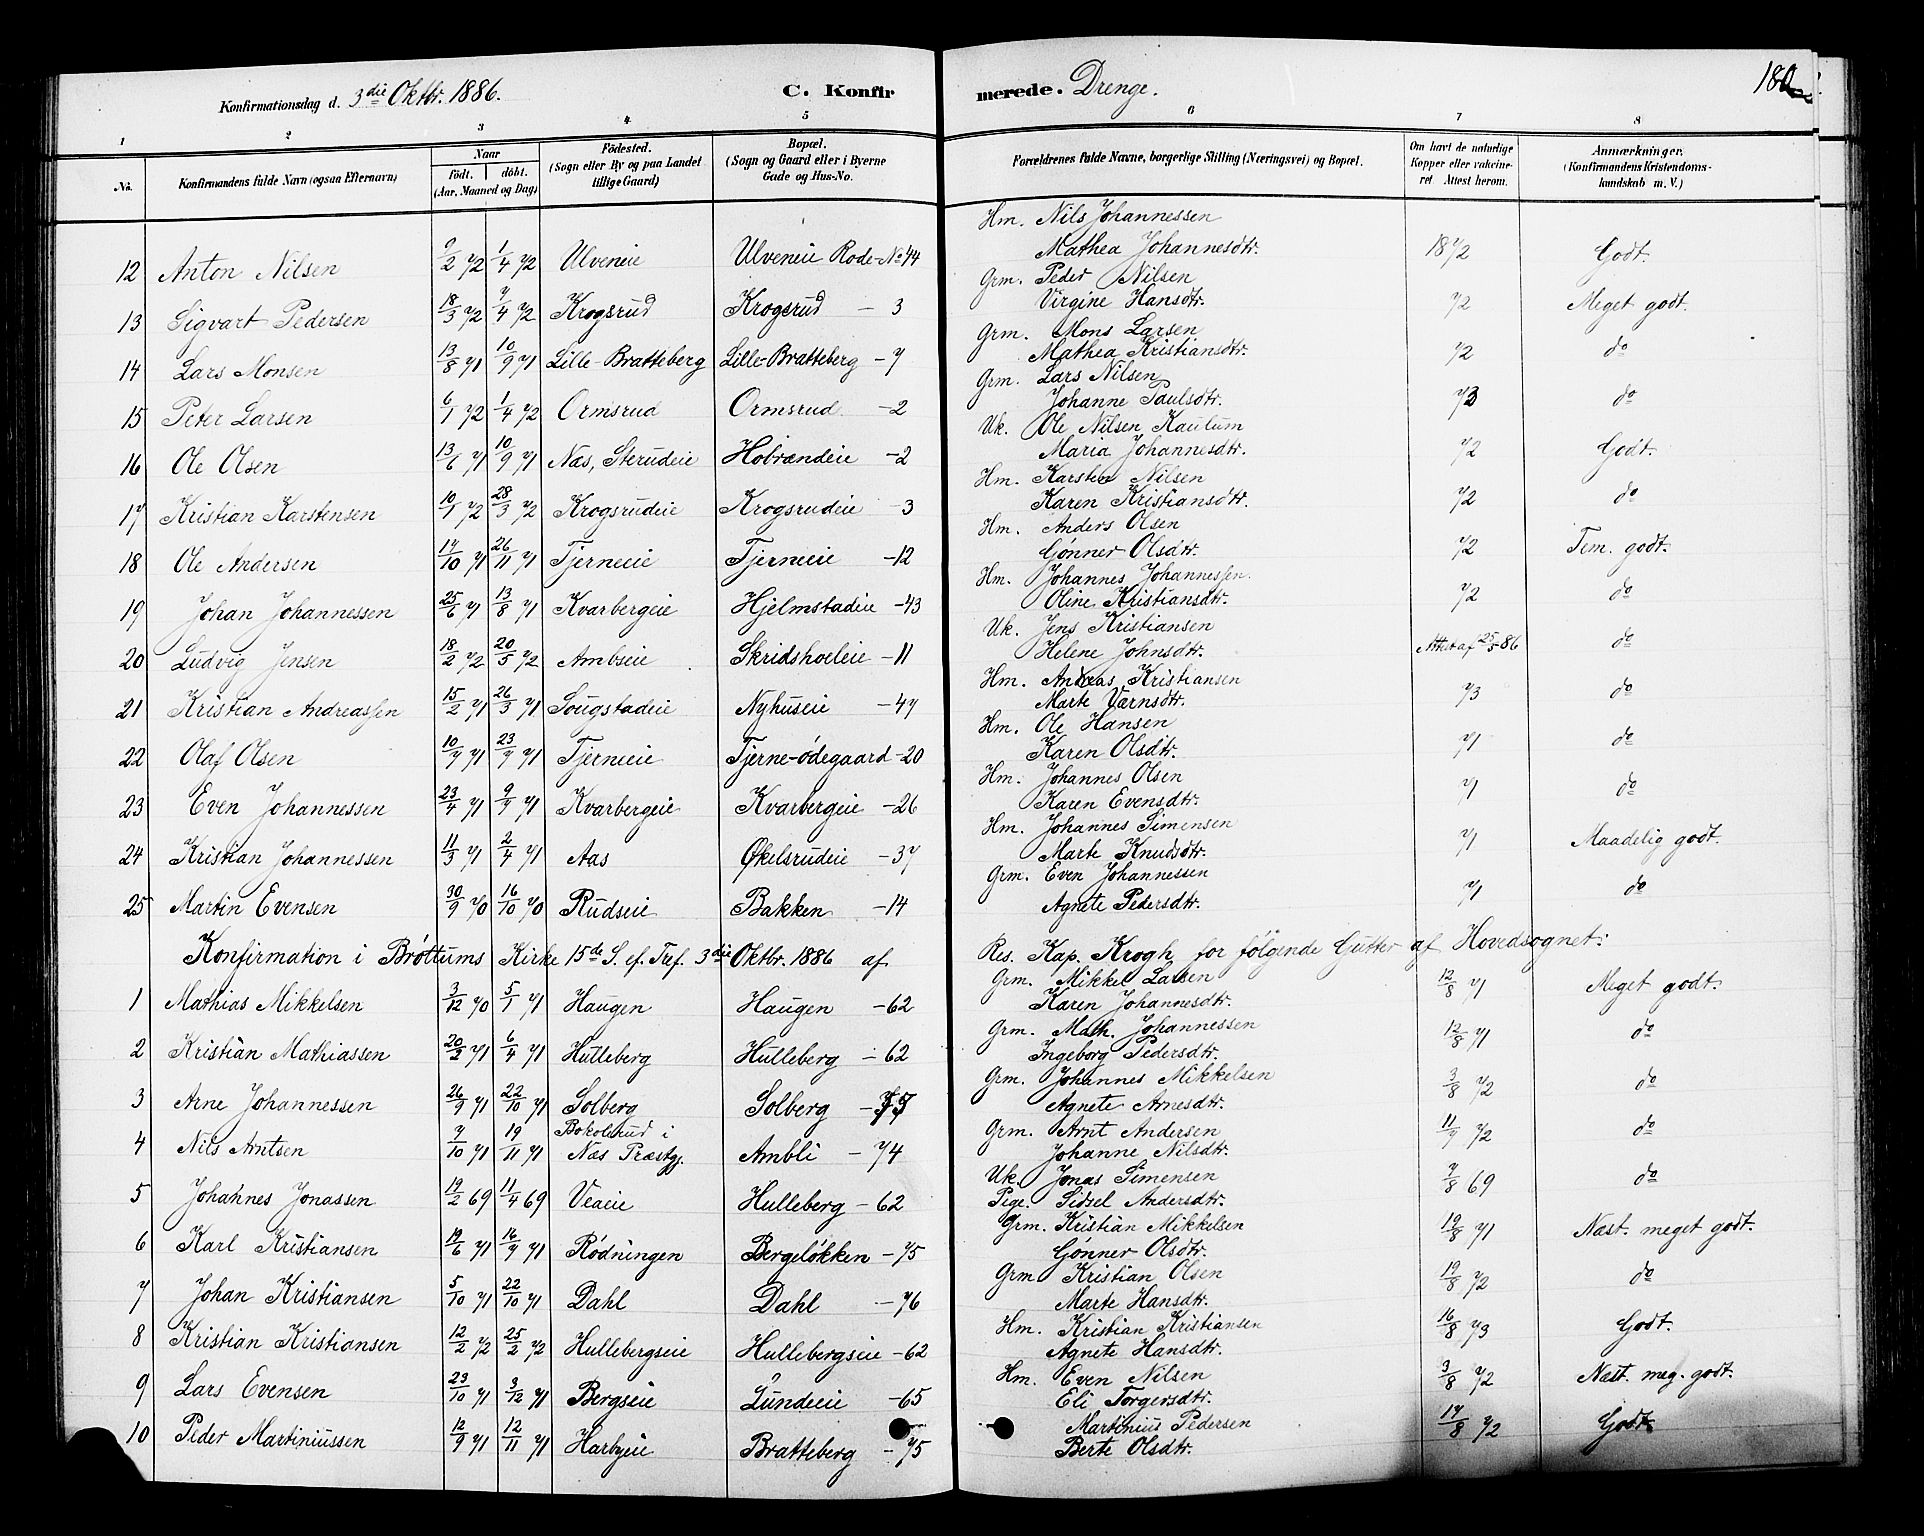 180
Konfirmationsdag d. 3die Oktbr. 1886. C. Konfirmerede. Drenge.
1 2 3 4 5 6 7 8
No. Konfirmandens fulde Navn (ogsaa Efternavn) Naar födt. döbt. (Aar, Maaned og Dag) Födested. (Sogn eller By og paa Landet tillige Gaard) Bopæl. (Sogn og Gaard eller i Byerne Gade og Hus-No. Forældrenes fulde Navne, borgerlige Stilling (Næringsvei) og Bopæl. Om havt de naturlige Kopper eller vakcineret Attest herom. Anmærkninger. (Konfirmandens Kristendomskundskab m. V.)
12 Anton Nilsen 9/2 72 1/4 72 Ulveneie Ulveneie Rode No 44 Hm. Nils Johannessen Mathea Johannesdtr. 1872 Godt.
13 Sigvart Pedersen 18/3 72 7/4 72 Krogsrud Krogsrud - 3 Grm. Peder Nilsen Virgine Hansdtr. 72 Meget godt.
14 Lars Monsen 13/8 71 10/9 71 Lille-Bratteberg Lille-Bratteberg - 7 Grm. Mons Larsen Mathea Kristiansdtr. 72 do
15 Peter Larsen 6/1 72 1/4 72 Ormsrud Ormsrud - 2 Grm. Lars Nilsen Johanne Paulsdtr. 73 do
16 Ole Olsen 13/6 71 10/9 71 Næs, Sterudeie Hobrændeie - 2 Uk. Ole Nilsen Kaulum Maria Johannesdtr. 72 Godt.
17 Kristian Karstensen 10/1 72 28/3 72 Krogsrudeie Krogsrudeie - 3 Hm. Karsten Nilsen Karen Kristiansdtr. 72 do
18 Ole Andersen 17/10 71 26/11 71 Tjerneie Tjerneie - 12 Hm. Anders Olsen Gønner Olsdtr. 72 Tem. godt.
19 Johan Johannessen 25/6 71 13/8 71 Kvarbergeie Hjelmstadeie - 43 Hm. Johannes Johannessen. Oline Kristiansdtr. 72 do
20 Ludvig Jensen 18/2 72 20/5 72 Ambseie Skridsholeie - 11 Uk. Jens Kristiansen Helene Johnsdtr. Attest af 25/5 86 do
21 Kristian Andreassen 15/2 71 26/3 71 Sougstadeie Nyhuseie - 47 Hm. Andreas Kristiansen Marte Varnsdtr. 73 do
22 Olaf Olsen 10/7 71 23/7 71 Tjerneie Tjerne-ödegaard - 20 Hm. Ole Hansen Karen Olsdtr. 71 do
23 Even Johannessen 23/4 71 9/7 71 Kvarbergeie Kvarbergeie - 26 Hm. Johannes Olsen Karen Evensdtr. 71 do
24 Kristian Johannessen 11/3 71 2/4 71 Aas Økelsrudeie - 37 Hm. Johannes Simensen Marte Knudsdtr. 71 Maadelig godt.
25 Martin Evensen 30/9 70 16/10 70 Rudseie Bakken - 14 Grm. Even Johannessen Agnete Pedersdtr. 71 do
Konfirmation i Bröttums Kirke 15de S. ef. Tref. 3die Oktbr. 1886 af Res. Kap. Krogh for fölgende Gutter af Hovedsognet:
1 Mathias Mikkelsen 3/12 70 5/1 71 Haugen Haugen - 62 Grm. Mikkel Larsen Karen Johannesdtr. 12/8 71 Meget godt.
2 Kristian Mathiassen 20/2 71 6/4 71 Hulleberg Hulleberg - 62 Grm. Math. Johannessen Ingeborg Pedersdtr. 12/8 71 do
3 Arne Johannessen 26/9 71 22/10 71 Solberg Solberg - 75 Grm. Johannes Mikkelsen Agnete Arnesdtr. 3/8 72 do
4 Nils Arntsen 7/10 71 19/11 71 Bokolsrud i Næs Præstgj. Ambli - 74 Grm. Arnt Andersen Johanne Nilsdtr. 11/7 72 do
5 Johannes Jonassen 19/2 69 11/4 69 Veaeie Hulleberg - 62 Uk. Jonas Simensen Pige. Sidsel Andersdtr. 7/8 69 do
6 Karl Kristiansen 19/6 71 16/7 71 Rödningen Bergelökken - 75 Grm. Kristian Mikkelsen Gönner Olsdtr. 19/8 71 Næst. meget godt.
7 Johan Kristiansen 5/10 71 22/10 71 Dahl Dahl - 76 Grm Kristian Olsen Marte Hansdtr. 19/8 72 do
8 Kristian Kristiansen 12/2 72 25/2 72 Hullebergseie Hullebergseie - 62 Hm. Kristian Kristiansen Agnete Hansdtr. 16/8 73 Godt.
9 Lars Evensen 23/10 71 3/12 71 Bergseie Lundeeie - 65 Hm. Even Nilsen Eli Torgersdtr. 3/8 72 Næst. meg. godt.
10 Peder Martiniussen 12/9 71 12/11 71 Harbyeie Bratteberg - 75 Martinius Pedersen Berte Olsdtr. 17/8 72 Godt